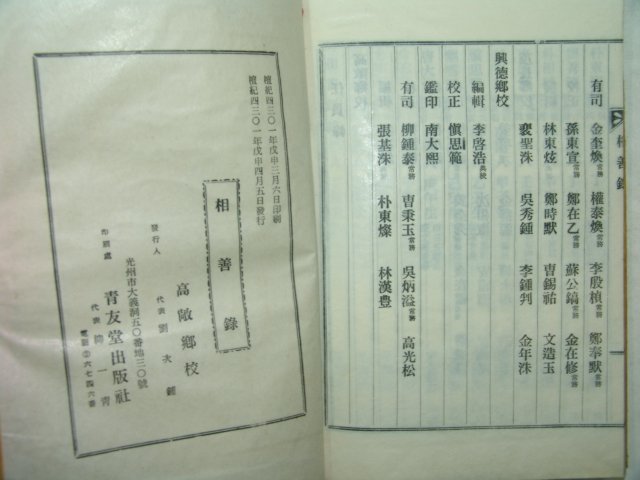 相善錄
有司 金奎煥常務 權泰煥常務 李殷楨常務 鄭奉默常務
孫東宣常務 鄭在乙常務 蘇公鎬常務 金在修常務
林東炫 鄭時默 曺錫祐 文造玉
裵聖洙 吳秀鍾 李鍾判 金年洙
興德鄕校
編輯 李啓浩
校正 愼思範
鑑印 南大熙
有司 柳鍾泰常務 曺秉玉常務 吳炳溢常務 高光松
張基洙 朴東燦 林漢豊
檀紀四三〇一年戊申三月六日印刷
檀紀四三〇一年戊申四月五日發行
相善錄
發行人 高敞鄕校
代表 劉次
印刷處 光州市大義洞五〇番地三〇號
靑友堂出版社
代表 一靑
電話②六七四六番